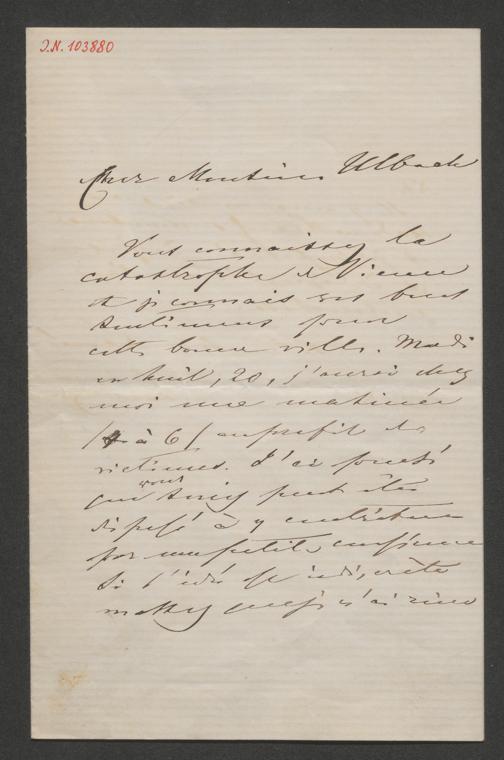 I.N. 103880
Cher Monsieur Ulbach
Vous connaissez la
catastrophe de Vienne
et je connais vos bons
sentiments pour
cette bonne ville. Mardi
en huit, 20, j'aurai chez
moi une matinée
(4 à 6) au profit des
victimes. J'ai pensé
que vous seriez peut être
disposé à y contribuer
par une petite conférence
Si l'idée est indiscrète
mettez que je n'ai rien